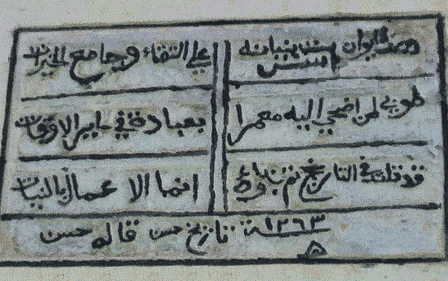 الايوان بنيانه على التقاء وجامع الخيرات
طوبى لمن اضحى اليه معمرا بعبادة في ساير الاوقات
قد قلت في التاريخ تم بناؤه انما الاعمال بالنيات
سنة ١٢٦٣ تاريخ حسن قاله حسن